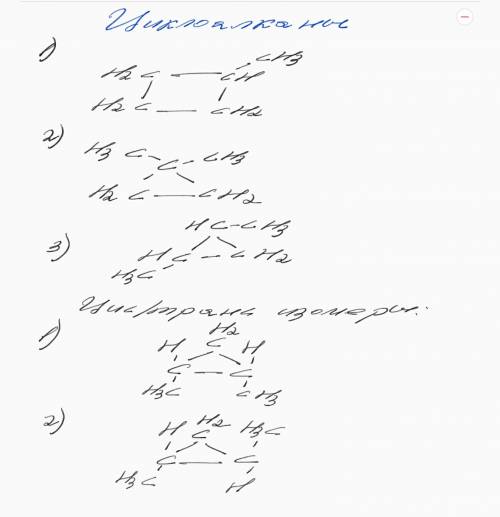 Циклоалканы
1)
CH3
H2C — CH
H2C — CH2
2)
H3C CH3
C
H2C — CH2
3)
HC-CH3
HC — CH2
H3C
Цис/транс изомеры:
1)
H2
H C H
C — C
H3C CH3
2)
H2
H C H3C
C — C
H3C H